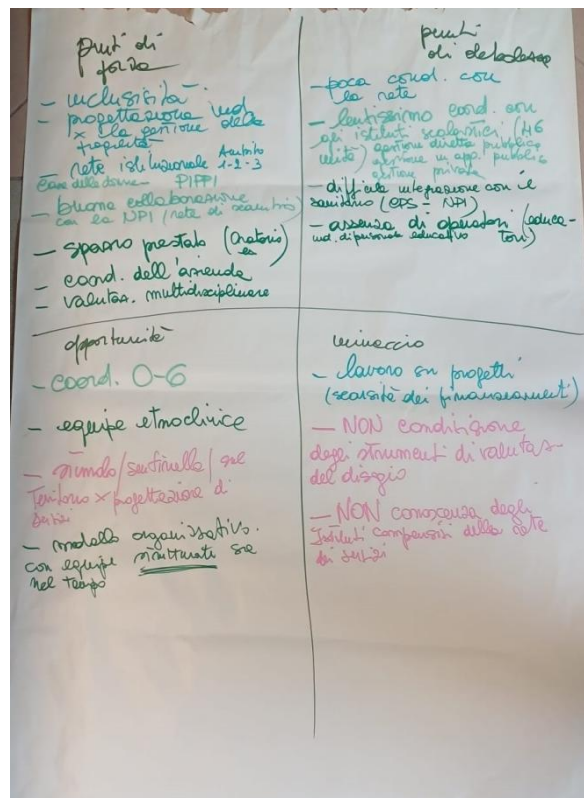 punti di
forza
- inclusività.
- progettazione ind.
x la gestione della
fragilità
- rete istituzionale Ambito
1-2-3
Casa delle donne - PIPPI
- buona collaborazione
con la NPI (rete di
- spazio prestato (Oratorio)
- coord. dell'azienda
- valutaz. multidisciplinare
punti
di debolezza
- poca cond. con
la rete
- lentissimo coord. con
gli istituti scolastici (46
unità) gestione diretta pubblica
gestione in app. pubblic
gestione privata
- difficile integrazione con il
sanitario (CPS - NPI)
- assenza di operatori (educa-
tori)
ind. di personale educativo
opportunità
- coord. 0-6
- equipe etnocliniche
- /sentinella/ sul
territorio x progettazione di
servizi
- modello organizzativo.
con equipe strutturati
nel tempo
minacce
- lavoro su progetti
(scarsità dei finanziamenti)
- NON condivisione
degli strumenti di valutaz.
del disagio
- NON conoscenza degli
Istituti comprensivi della rete
dei servizi